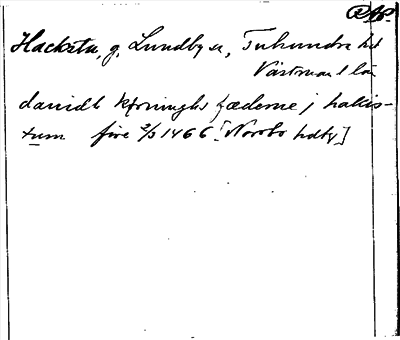 RAP.
Hacksta, g. Lundby sn, Tuhundra hd
Västmanl län
davidh kørninghs fæderne j hakis-
tum fire 2/3 1466 [Norrbo hdtg]